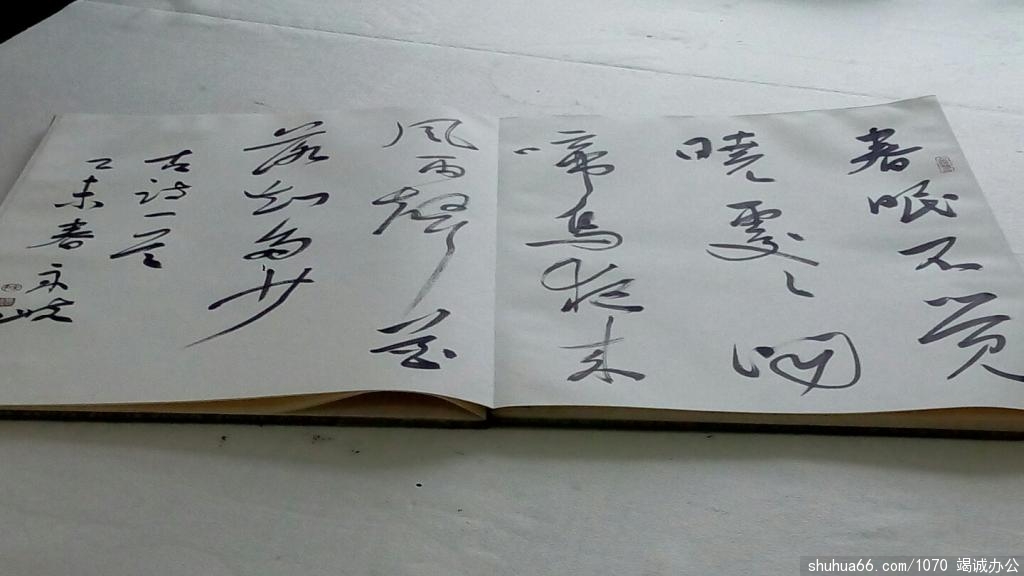 春眠不觉
晓處々闻
啼鸟夜来
风雨聲花
落知多少
古诗一首
乙未春永岐
shuhua66.com/1070 竭诚办公